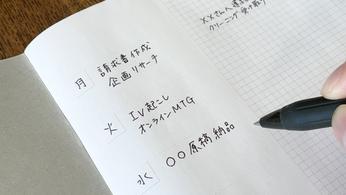 月
請求書作成
企画リサーチ
火
IV起こし
オンラインMTG
水
〇〇原稿納品
××さんへ
クリーニング受け取り